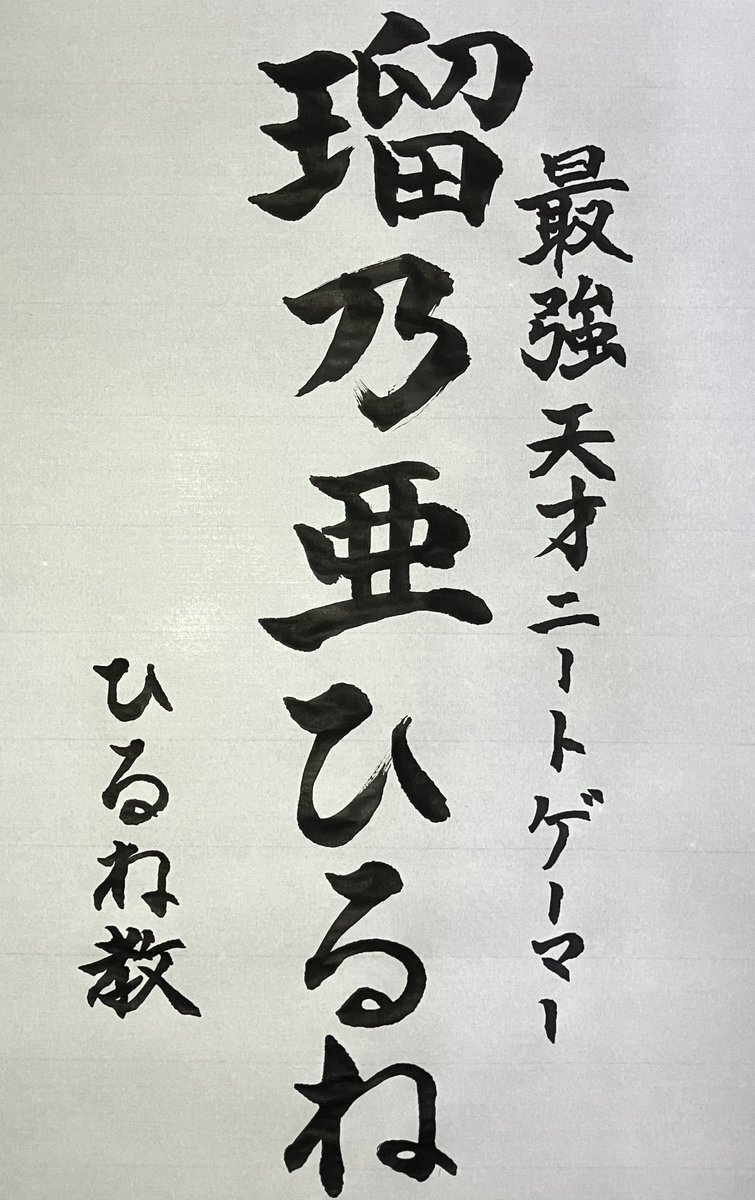 最強天才ニートゲーマー
瑠乃亜ひるね
ひるね教